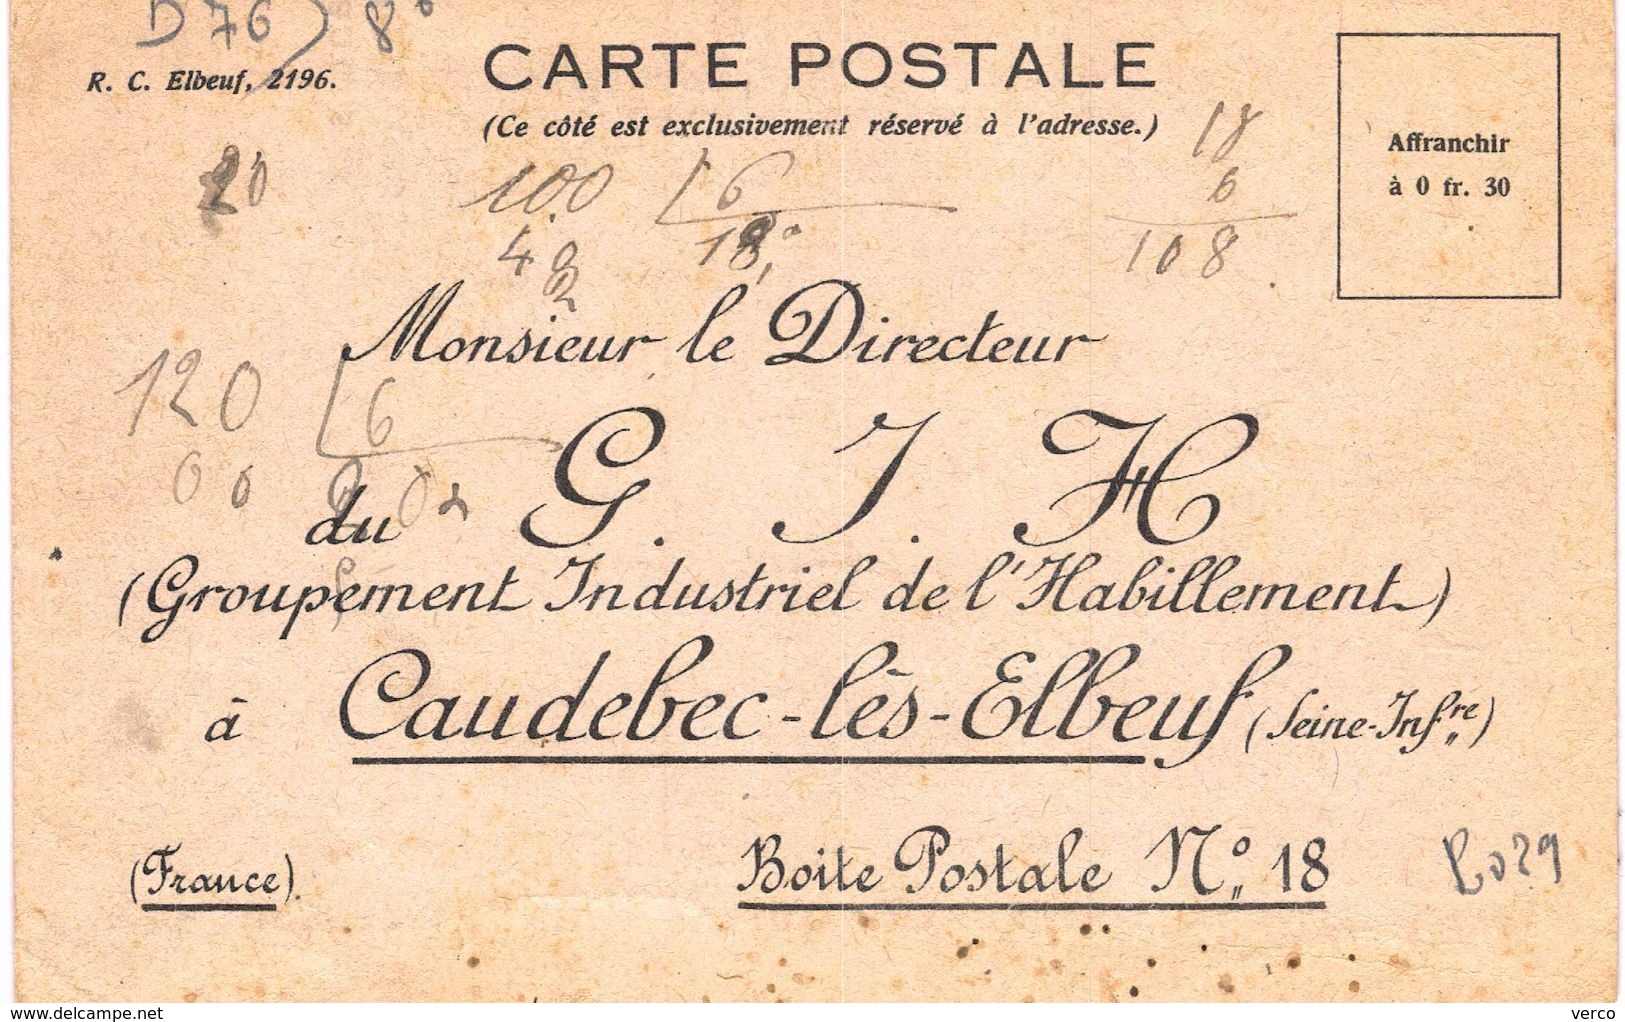 D 76) 8
R. C. Elbeuf, 2196.
CARTE POSTALE
(Ce côté est exclusivement réservé à l'adresse.)
Affranchir
à 0 fr. 30
20
100 6
40 18,
2
18
6
108
Monsieur le Directeur
120 6
00
du G. I. H
(Groupement Industriel de l'Habillement)
à Caudebec-lès-Elbeuf (Seine-Infre)
(France). Boite Postale No 18
www.delcampe.net verco